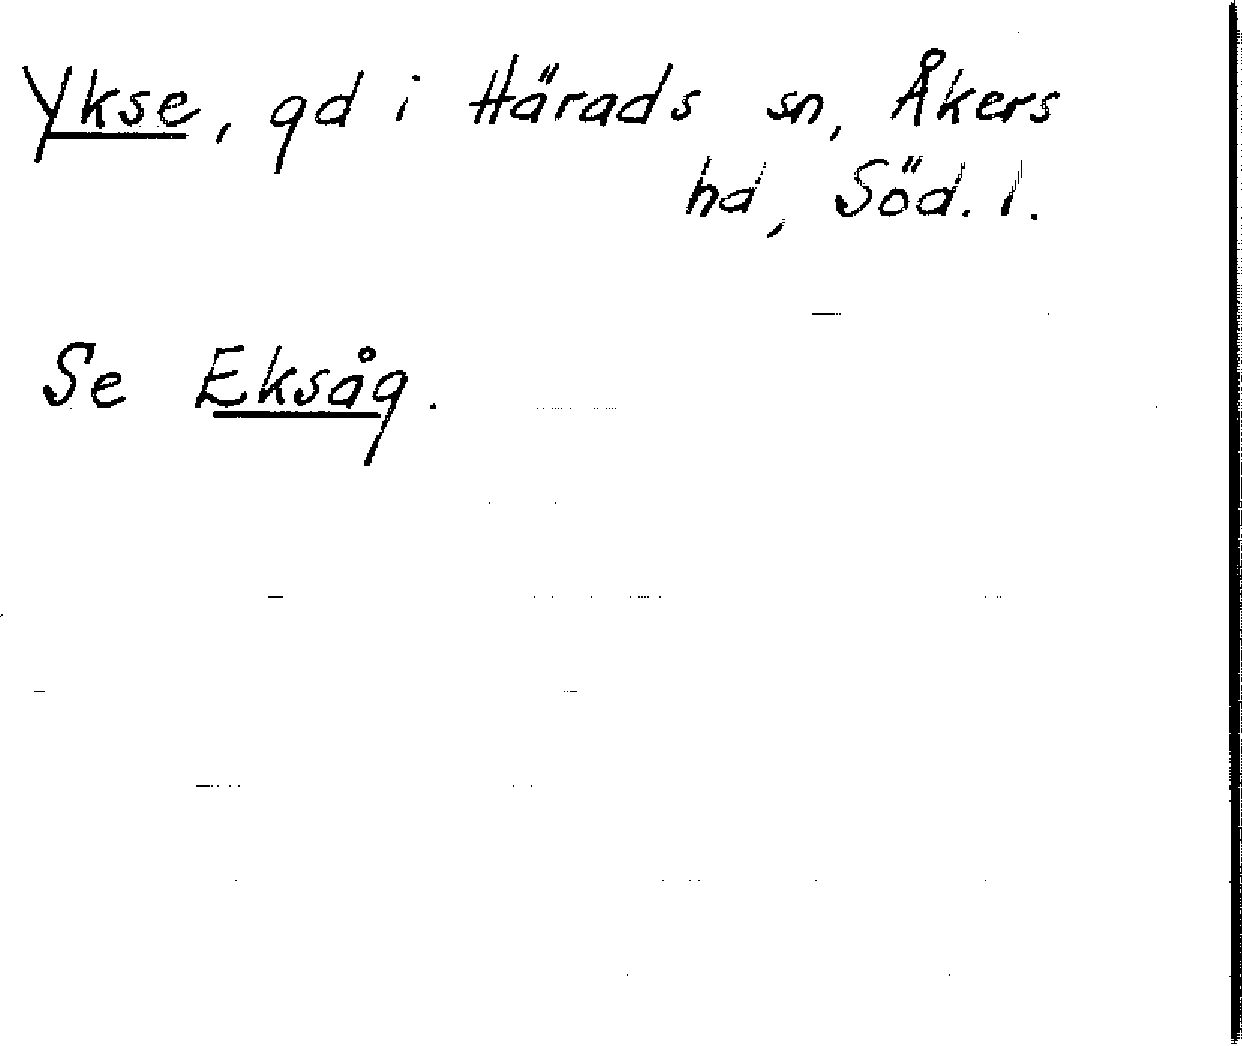 Ykse, gd i Härads sn, Åkers
hd, Söd. l.
Se Eksåg.